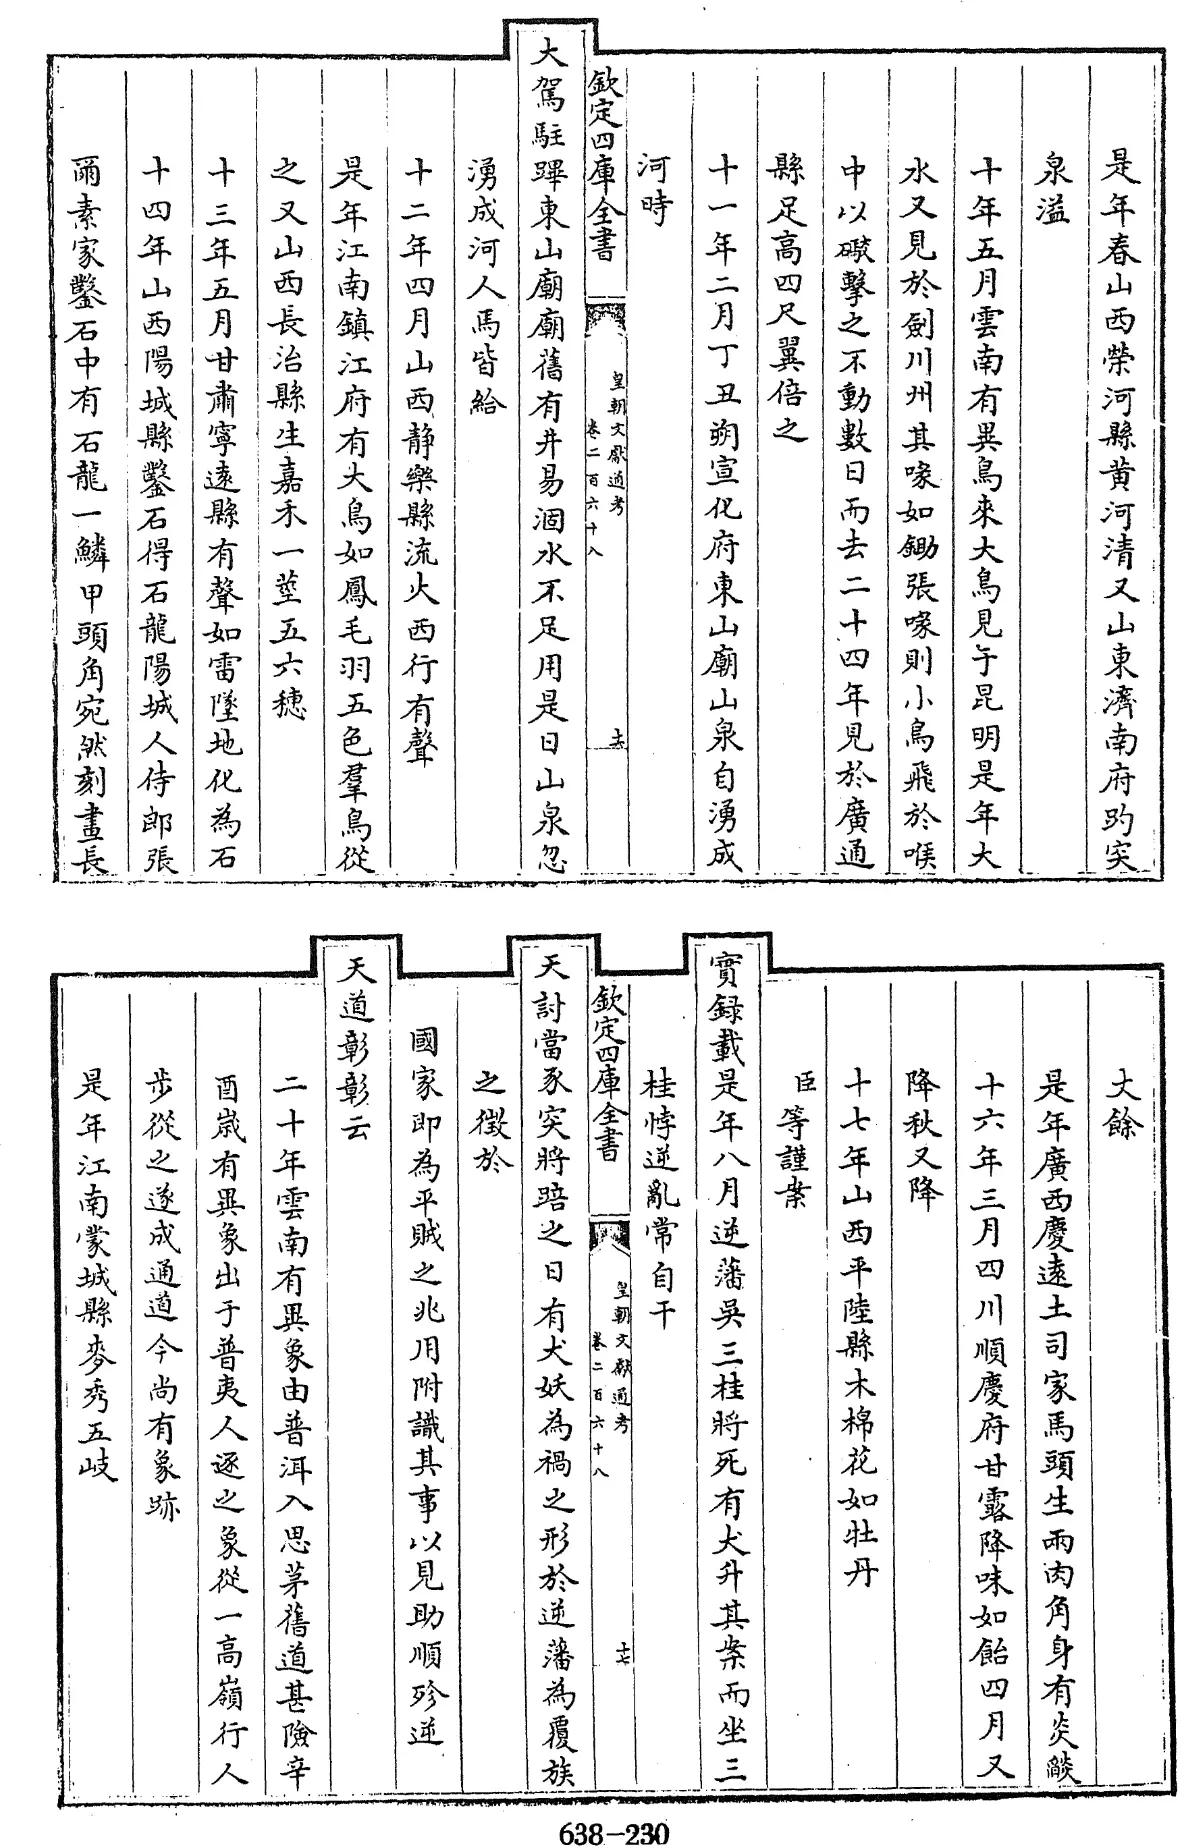 是年春山西榮河縣黄河清又山東濟南府趵突
泉溢
十年五月雲南有異鳥來大鳥見于昆明是年大
水又見於劍川州其喙如鋤張喙則小鳥飛於喉
中以礮擊之不動數日而去二十四年見於廣通
縣足高四尺翼倍之
十一年二月丁丑朔宣化府東山廟山泉自湧成
河時
欽定四庫全書
皇朝文獻通考
卷二百六十八
十六
大駕駐蹕東山廟廟舊有井易涸水不足用是日山泉忽
湧成河人馬皆給
十二年四月山西静樂縣流火西行有聲
是年江南鎮江府有大鳥如鳳毛羽五色羣鳥從
之又山西長治縣生嘉禾一莖五六穗
十三年五月甘肅寧遠縣有聲如雷墜地化為石
十四年山西陽城縣鑿石得石龍陽城人侍郎張
爾素家鑿石中有石龍一鱗甲頭角宛然刻畫長
丈餘
是年廣西慶遠土司家馬頭生兩肉角身有炎燄
十六年三月四川順慶府甘露降味如飴四月又
降秋又降
十七年山西平陸縣木棉花如牡丹
臣等謹案
實録載是年八月逆藩吳三桂將死有犬升其案而坐三
桂悖逆亂常自干
欽定四庫全書
皇朝文獻通考
卷二百六十八
十七
天討當豕突將踣之日有犬妖為禍之形於逆藩為覆族
之徵於
國家即為平賊之兆用附識其事以見助順殄逆
天道彰彰云
二十年雲南有異象由普洱入思茅舊道甚險辛
酉嵗有異象出于普夷人逐之象從一高嶺行人
步從之遂成通道今尚有象跡
是年江南蒙城縣麥秀五岐
638-230